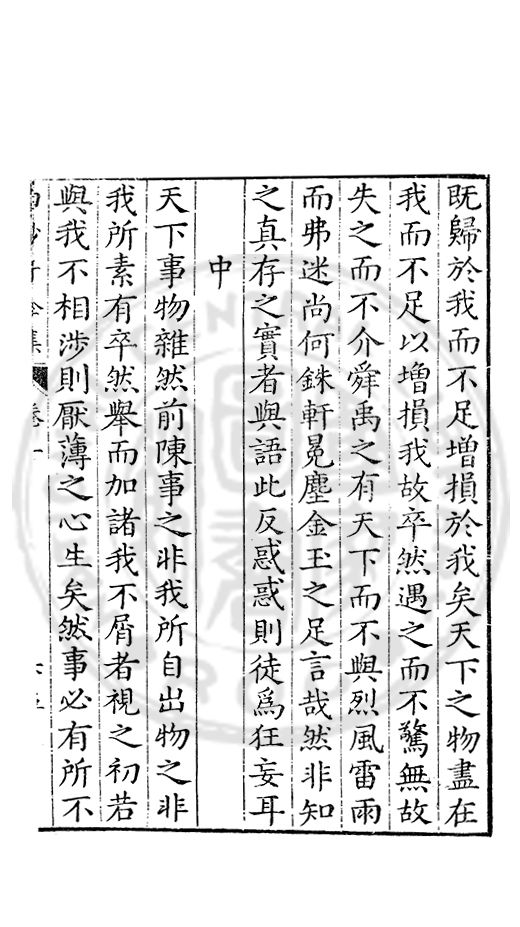 既歸於我而不足增損於我矣天下之物盡在
我而不足以增損我故卒然遇之而不驚無故
失之而不介舜禹之有天下而不與烈風雷雨
而弗迷尚何銖軒冕塵金玉之足言哉然非知
之真存之實者與語此反惑惑則徒爲狂妄耳
中
天下事物雜然前陳事之非我所自出物之非
我所素有卒然舉而加諸我不屑者視之初若
與我不相涉則厭薄之心生矣然事必有所不